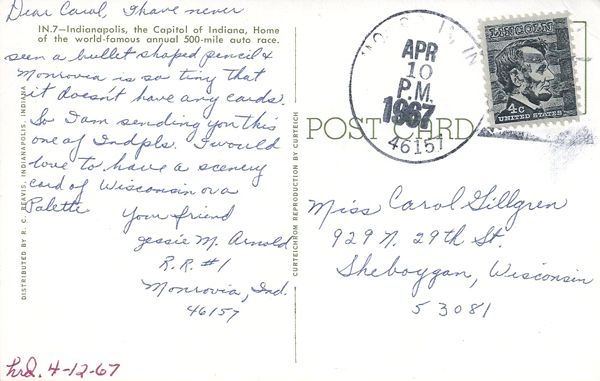 Dear Carol, I have never
IN.7—Indianapolis, the Capitol of Indiana, Home
of the world-famous annual 500-mile auto race.
seen a bullet shaped pencil &
Monrovia is so tiny that
it doesn't have any cards.
So I am sending you this
one of Indpls. I would
love to have a scenery
card of Wisconsin or a
Palette
Your friend
Jessie M. Arnold
R.R. #1
Monrovia, Ind.
46157
hrd. 4-12-67
DISTRIBUTED BY R. C. REAVIS, INDIANAPOLIS, INDIANA
CURTEICHROM REPRODUCTION BY CURTEICH
POST CARD
IN
APR
10
P.M.
1967
46157
LINCOLN
4c
UNITED STATES
Miss Carol Gillgren
929 N. 29th St.
Sheboygan, Wisconsin
53081